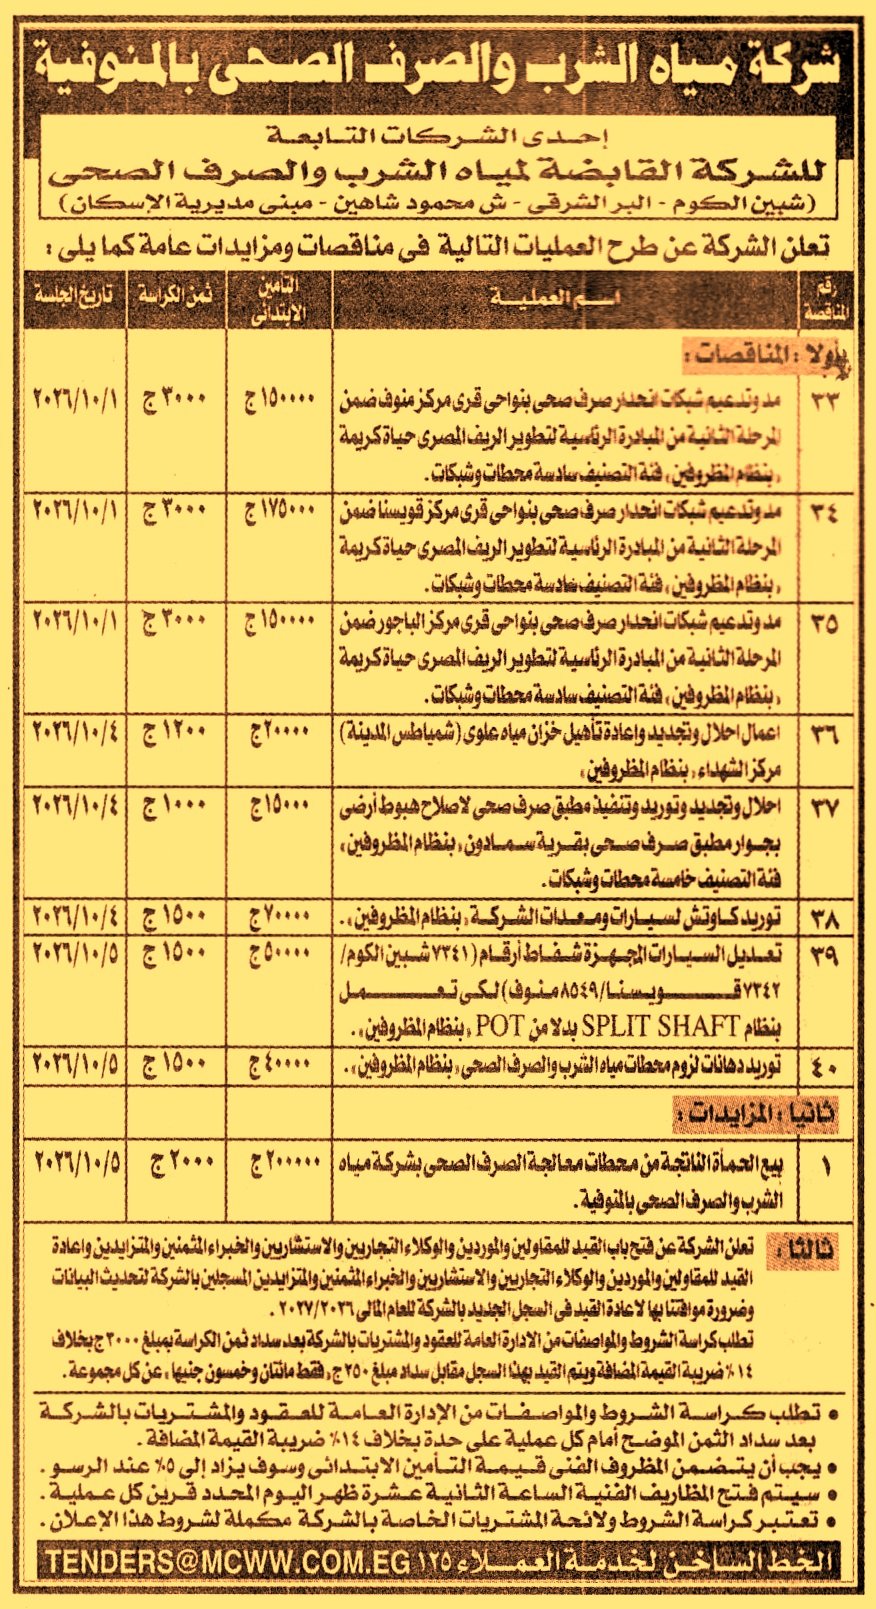 شركة مياه الشرب والصرف الصحى بالمنوفية
إحدى الشركات التابعة
للشركة القابضة لمياه الشرب والصرف الصحى
(شبين الكوم - البر الشرقى - ش محمود شاهين - مبنى مديرية الإسكان)
تعلن الشركة عن طرح العمليات التالية فى مناقصات ومزايدات عامة كما يلى :
رقم المناقصة
اسم العملية
التأمين الابتدائى
ثمن الكراسة
تاريخ الجلسة
أولا : المناقصات :
٣٣ مد وتدعيم شبكات انحدار صرف صحى بنواحى قرى مركز منوف ضمن ١٥٠٠٠٠ ج ٣٠٠٠ ج ٢٠٢٦/١٠/١
المرحلة الثانية من المبادرة الرئاسية لتطوير الريف المصرى حياة كريمة
«بنظام المظروفين» فئة التصنيف سادسة محطات وشبكات .
٣٤ مد وتدعيم شبكات انحدار صرف صحى بنواحى قرى مركز قويسنا ضمن ١٧٥٠٠٠ ج ٣٠٠٠ ج ٢٠٢٦/١٠/١
المرحلة الثانية من المبادرة الرئاسية لتطوير الريف المصرى حياة كريمة
«بنظام المظروفين» فئة التصنيف سادسة محطات وشبكات .
٣٥ مد وتدعيم شبكات انحدار صرف صحى بنواحى قرى مركز الباجور ضمن ١٥٠٠٠٠ ج ٣٠٠٠ ج ٢٠٢٦/١٠/١
المرحلة الثانية من المبادرة الرئاسية لتطوير الريف المصرى حياة كريمة
«بنظام المظروفين» فئة التصنيف سادسة محطات وشبكات .
٣٦ اعمال احلال وتجديد واعادة تأهيل خزان مياه علوى (شمياطس المدينة) ٢٠٠٠٠ ج ١٢٠٠ ج ٢٠٢٦/١٠/٤
مركز الشهداء «بنظام المظروفين»
٣٧ احلال وتجديد وتوريد وتنفيذ مطبق صرف صحى لاصلاح هبوط أرضى ١٥٠٠٠ ج ١٠٠٠ ج ٢٠٢٦/١٠/٤
بجوار مطبق صرف صحى بقرية سمادون «بنظام المظروفين»
فئة التصنيف خامسة محطات وشبكات .
٣٨ توريد كاوتش لسيارات ومعدات الشركة «بنظام المظروفين» . ٧٠٠٠٠ ج ١٥٠٠ ج ٢٠٢٦/١٠/٤
٣٩ تعديل السيارات المجهزة شفاط أرقام (٧٣٤١ شبين الكوم/ ٥٠٠٠٠ ج ١٥٠٠ ج ٢٠٢٦/١٠/٥
٧٣٤٢ قويسنا/٨٥٤٩ منوف) لكى تعمل
بنظام SPLIT SHAFT بدلا من POT «بنظام المظروفين» .
٤٠ توريد دهانات لزوم محطات مياه الشرب والصرف الصحى «بنظام المظروفين» . ٤٠٠٠٠ ج ١٥٠٠ ج ٢٠٢٦/١٠/٥
ثانيا : المزايدات :
١ بيع الحمأة الناتجة من محطات معالجة الصرف الصحى بشركة مياه ٢٠٠٠٠٠ ج ٢٠٠٠ ج ٢٠٢٦/١٠/٥
الشرب والصرف الصحى بالمنوفية .
ثالثا : تعلن الشركة عن فتح باب القيد للمقاولين والموردين والوكلاء التجاريين والاستشاريين والخبراء المثمنين والمتزايدين واعادة
القيد للمقاولين والموردين والوكلاء التجاريين والاستشاريين والخبراء المثمنين والمتزايدين المسجلين بالشركة لتحديث البيانات
وضرورة موافتنا بها لاعادة القيد فى السجل الجديد بالشركة للعام المالى ٢٠٢٧/٢٠٢٦ .
تطلب كراسة الشروط والمواصفات من الادارة العامة للعقود والمشتريات بالشركة بعد سداد ثمن الكراسة بمبلغ ٣٠٠٠ ج بخلاف
١٤٪ ضريبة القيمة المضافة ويتم القيد بهذا السجل مقابل سداد مبلغ ٢٥٠ ج «فقط مائتان وخمسون جنيها» عن كل مجموعة .
• تطلب كراسة الشروط والمواصفات من الإدارة العامة للعقود والمشتريات بالشركة
بعد سداد الثمن الموضح أمام كل عملية على حدة بخلاف ١٤٪ ضريبة القيمة المضافة .
• يجب أن يتضمن المظروف الفنى قيمة التأمين الابتدائى وسوف يزاد إلى ٥٪ عند الرسو .
• سيتم فتح المظاريف الفنية الساعة الثانية عشرة ظهر اليوم المحدد قرين كل عملية .
• تعتبر كراسة الشروط ولائحة المشتريات الخاصة بالشركة مكملة لشروط هذا الإعلان .
الخط الساخن لخدمة العملاء ١٢٥ TENDERS@MCWW.COM.EG